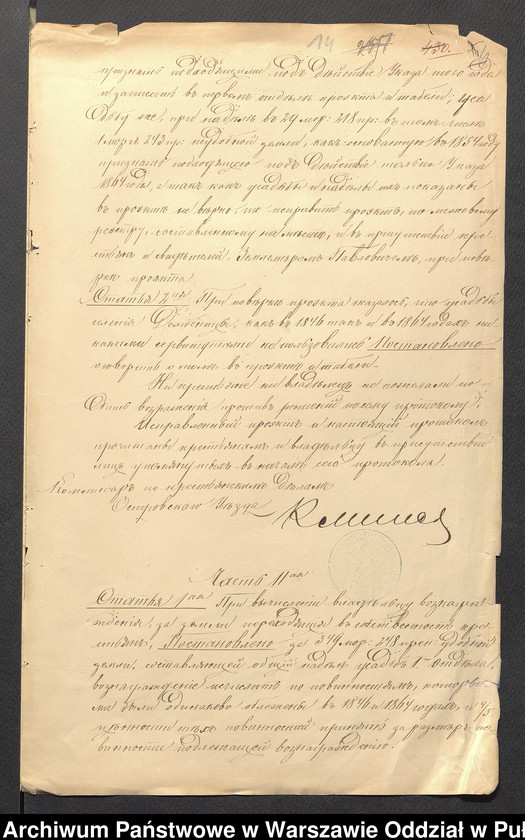 14
430.
признать подходящими подъ дѣйствіе Указа того года
и записать въ первомъ отдѣлѣ проэкта и табели;
же, при надѣлѣ въ 29 мор: 218 пр: въ томъ числѣ
1 мор: 243 пр: неудобной земли, какъ основанную въ 1854 году
признать подходящею подъ дѣйствіе только Указа
1864 года, а такъ какъ усадьбы и надѣлы показаны
въ проэктѣ не вѣрно: то исправить проэктъ, по межевому
реестру, составленному на мѣстѣ, и въ присутствіи кре-
стьянъ и свидѣтелей, Землемѣромъ Павловичемъ, при повѣ-
ркѣ проэкта
Статья 2ая При повѣркѣ проэкта оказалось, что усадьбы
селенія какъ въ 1846 такъ и въ 1864 годахъ ни
какими сервитутами не пользовались Постановлено
оговорить о томъ въ проэктѣ и табели.
Ни крестьяне ни владѣлецъ не пожелали по-
дать возраженія противъ рѣшеній по сему протоколу.
Исправленный проэктъ и настоящій протоколъ
прочитаны крестьянамъ и владѣльцу въ присутствіи
лицъ упомянутыхъ въ началѣ сего протокола.
Комисаръ по крестьянскимъ дѣламъ
Островскаго Уѣзда
Часть IIая
Статья 1ая При вычисленіи владѣльцу вознагра-
жденія, за земли переходящія въ собственность кре-
стьянъ, Постановлено за мор: 218 прен: удобной
земли, составляющей общій надѣлъ усадьбъ 1го отдѣла,
вознагражденіе исчислить по повинностямъ, которы-
ми были одинаково обложены въ 1846 и 1864 годахъ, и 4/5
цѣнности тѣхъ повинностей принять за размѣръ по-
винности подлежащей вознагражденію.
Archiwum Państwowe w Warszawie Oddział w Pu